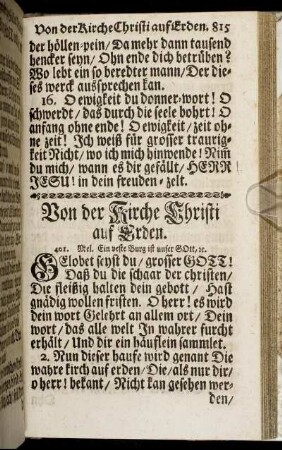 Von der Kirche Christi auf Erden. 815
der höllen-pein/ Da mehr dann tausend
hencker seyn/ Ohn ende dich betrüben?
Wo lebt ein so beredter mann/ Der die-
ses werck aussprechen kan.
16. O ewigkeit du donner-wort! O
schwerdt/ das durch die seele bohrt! O
anfang ohne ende! O ewigkeit/ zeit oh-
ne zeit! Ich weiß für grosser traurig-
keit Nicht/ wo ich mich hinwende! Nim̃
du mich/ wann es dir gefällt/ HERR
JESU! in dein freuden-zelt.
Von der Kirche Christi
auf Erden.
401. Mel. Ein veste Burg ist unser GOtt, ꝛc.
GElobet seyst du/ grosser GOTT!
Daß du die schaar der christen/
Die fleißig halten dein gebott/ Hast
gnädig wollen fristen. O herr! es wird
dein wort Gelehrt an allem ort/ Dein
wort/ das alle welt In wahrer furcht
erhält/ Und dir ein häuflein sammlet.
2. Nun dieser haufe wird genant Die
wahre kirch auf erden/ Die/ als nur dir/
o herr! bekant/ Nicht kan gesehen wer-
den/